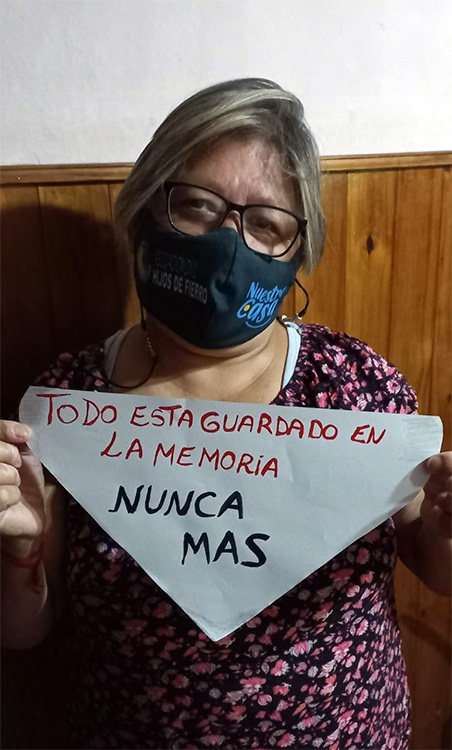 HIJOS DE FIERRO
Nuestra
Casa
TODO ESTA GUARDADO EN
LA MEMORIA
NUNCA
MAS